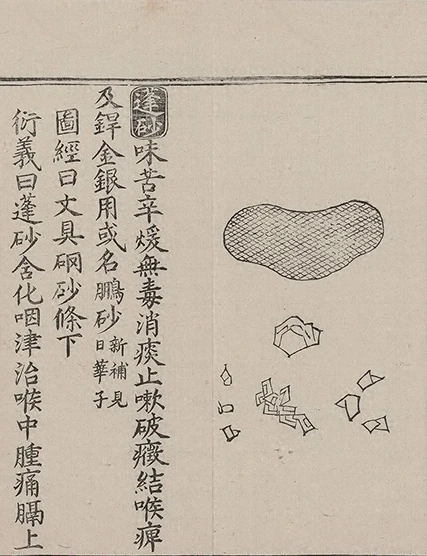 蓬砂味苦辛煖無毒消痰止嗽破癥結喉痺
及銲金銀用或名鵬砂新補見日華子
圖經曰文具硇砂條下
衍義曰蓬砂含化咽津治喉中腫痛膈上